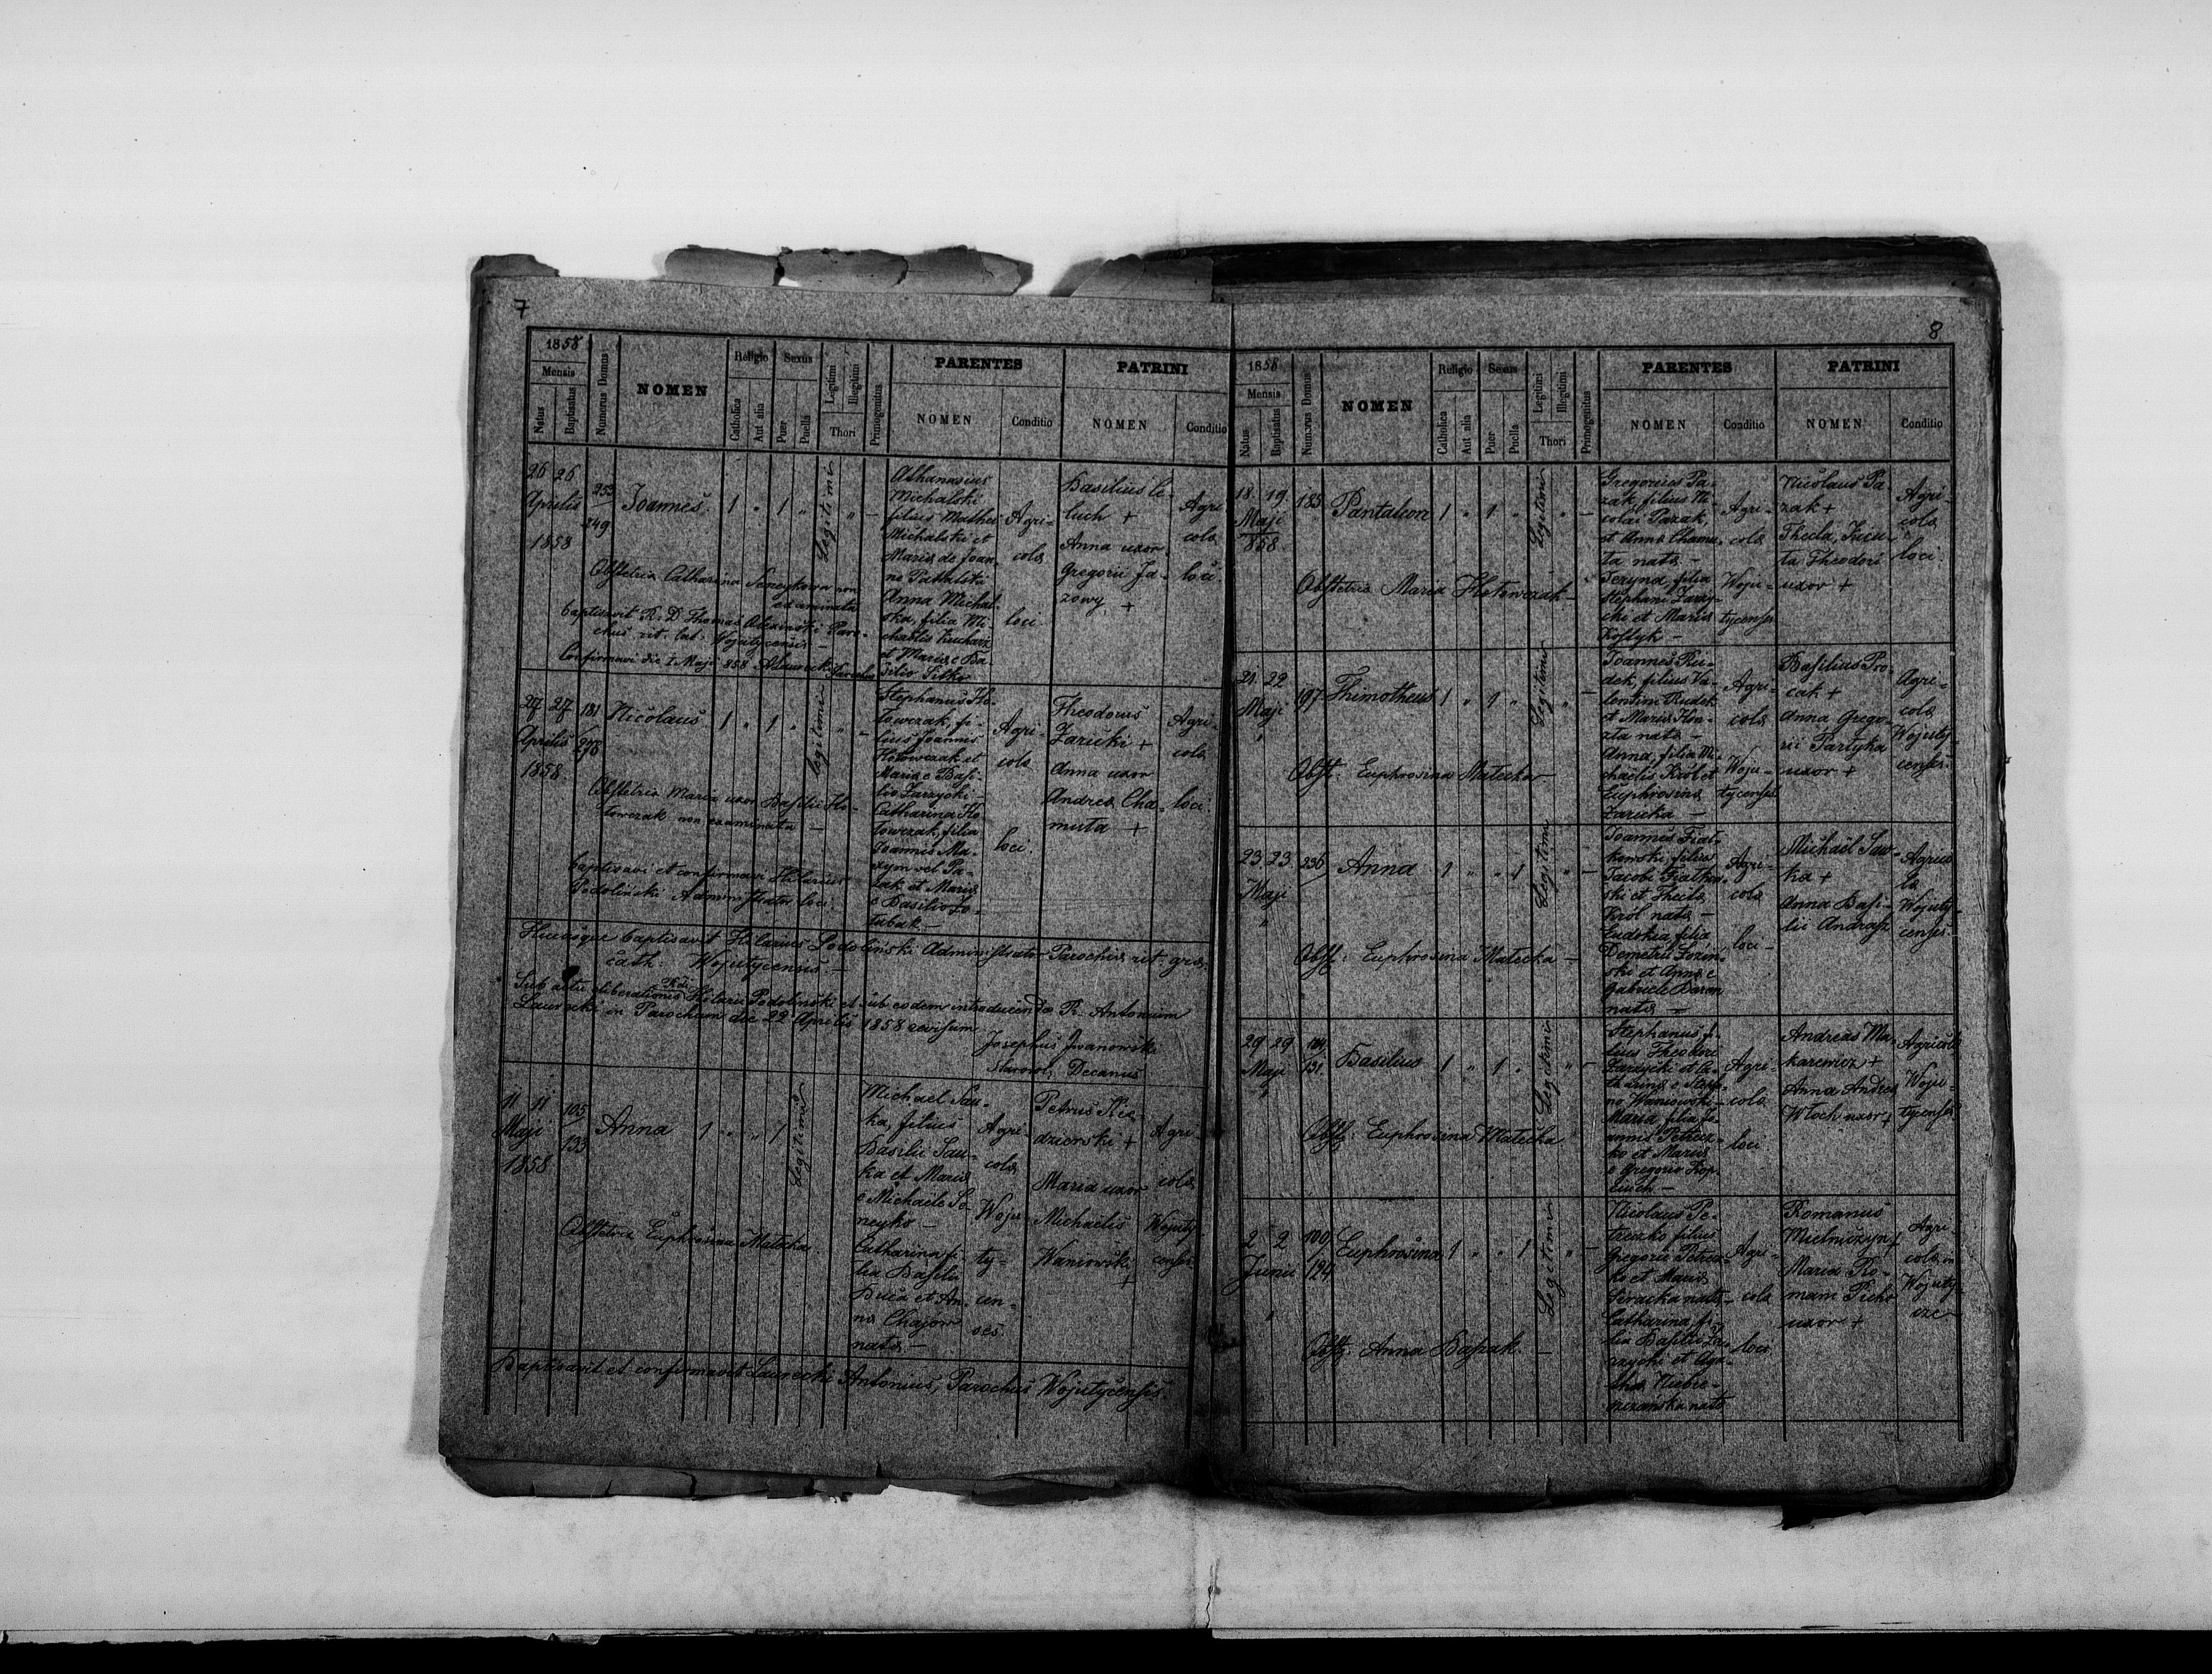 7
1858
Mensis
Natus
Baptisatus
Numerus Domus
NOMEN
Religio
Catholica
Aut alia
Sexus
Puer
Puella
Legitimi
Illegitimi
Thori
Primogenitus
PARENTES
NOMEN
Conditio
PATRINI
NOMEN
Conditio
26 26
Aprilis
1858
253
249
Joannes
1 " 1 "
Legitimi
" –
Athanasius
Michalski
filius Mathei
Michalski et
Maria de Joan-
ne
Anna Michal-
ska, filia Mi-
chaelis Kucharz
et Maria e Ba-
silio Sitko
Agri-
cola
loci.
Basilius
luch +
Anna uxor
Gregorii Ja-
zowy +
Agri
cola
loci.
Obstetrix Catharina non
examinata
Baptisavit R. D. Thomas Paro-
chus rit. lat. Wojutycensis –
Confirmavi die 1 Maji 858 Parochus
27 27
Aprilis
1858
181
278
Nicolaus
1 " 1 "
legitimi
" –
Stephanus Ho-
towczak, fi-
lius Joannis
Hotowczak et
Maria e Basi-
lio Zarzycki –
Catharina Ho-
towczak, filia
Joannis Ma-
xym vel Pa-
zak et Maria
e Basilio
Agri-
cola
loci.
Theodorus
Zaricki +
Anna uxor
Andrea Cha-
muta +
Agri-
cola
loci
Obstetrix Maria uxor Basilii Ho-
towczak non examinata –
baptisavi et confirmavi Hilarius
Podoliński Administrator loci.
Hucusque baptisavit Hilarius Podoliński Administrator Parochiae rit. gra.
cath. Wojutycensis. –
Sub actu liberationis Hilarii Podoliński et sub eodem introducendo R. Antonium
Lawrecki in Parochum die 22 Aprilis 1858 revisum
Josephus Iwanowski
Decanus
11 11
Maji
1858
105
133
Anna
1 " " 1
Legitimi
Michael Sau-
ka, filius
Basilii Sau-
ka et Maria
e Michaele Se-
neyko –
Catharina fi-
lia Basilii
Buca et An-
na Chajow
nata –
Agri-
cola
Woju-
ty-
cen-
ses.
Petrus Nie-
dzierski +
Maria uxor
Michaelis
Waniowski
+
Agri-
cola
Wojuty-
censes
Obstetrix Euphrosina Matecka.
Baptisavit et confirmavit Lawrecki Antonius, Parochus Wojutycensis
8
1858
Mensis
Natus
Baptisatus
Numerus Domus
NOMEN
Religio
Catholica
Aut alia
Sexus
Puer
Puella
Legitimi
Illegitimi
Thori
Primogenitus
PARENTES
NOMEN
Conditio
PATRINI
NOMEN
Conditio
18. 19.
Maji
858.
185
Pantaleon
1 " 1 "
Legitimi
" –
Gregorius Pa-
zak, filius Ni-
colai Pazak,
et Anna Chamu-
ta nata –
filia
Stephani Zarzy-
cki et Maria
Kostyk –
Agri-
cola
Woju-
tycenses
Nicolaus Pa-
zak +
Thecla,
Theodori
uxor +
Agri-
cola
loci.
Obstetrix Maria Hotowczak –
21. 22
Maji
"
197
Thimotheus
1 " 1 "
Legitimi
" –
Joannes Ru-
dek, filius Va-
lentini Rudek
et Maria
nata –
Anna, filia Mi-
chaelis Król et
Euphrosina
Zaricka –
Agri-
cola
Woju-
tycenses
Basilius Pro-
cak +
Anna Grego-
rii Partyka
uxor +
Agri-
cola
Wojuty-
censes.
Obst: Euphrosina Matecka –
23 23
Maji
"
236
Anna
1 " " 1
Legitimi
" –
Joannes Fiat-
kowski, filius
Jacobi Fiatkow-
ski et Thecla
Król nata –
Eudokia, filia
Demetrii
ski et Anna e
Gabriele Baran
nata –
Agri-
cola
loci –
Michaël Saw-
ka +
Anna Basi-
lii Andrasz
Agrico
la
Wojuty-
censes.
Obst: Euphrosina Matecka –
29 29
Maji
"
104
131.
Basilius
1 " 1 "
Legitimi
" –
Stephanus fi-
lius Theodori
Zarzycki et Ca-
tharina e Stepha-
no Waniowski –
Maria filia Jo-
annis Petrecz-
ko et Maria
e Gregorio
Agri-
cola
loci
Andreas Ma-
karewicz +
Anna Andrea
Wloch uxor +
Agricola
Woju-
tycenses
Obst: Euphrosina Matecka
2 2
Junii
"
100
124
Euphrosina
1 " " 1
Legitimi
" –
Nicolaus Pe-
treczko filius
Gregorii Petrecz-
ko et Maria
nata –
Catharina fi-
lia Basilii Za-
rzycki et Aga-
tha
nata
Agri-
cola
loci
Romanus
Mielniczyn +
Maria Ro-
mani
uxor +
Agri-
cola in
Wojuty-
cze
Obst: Anna Bassak. –